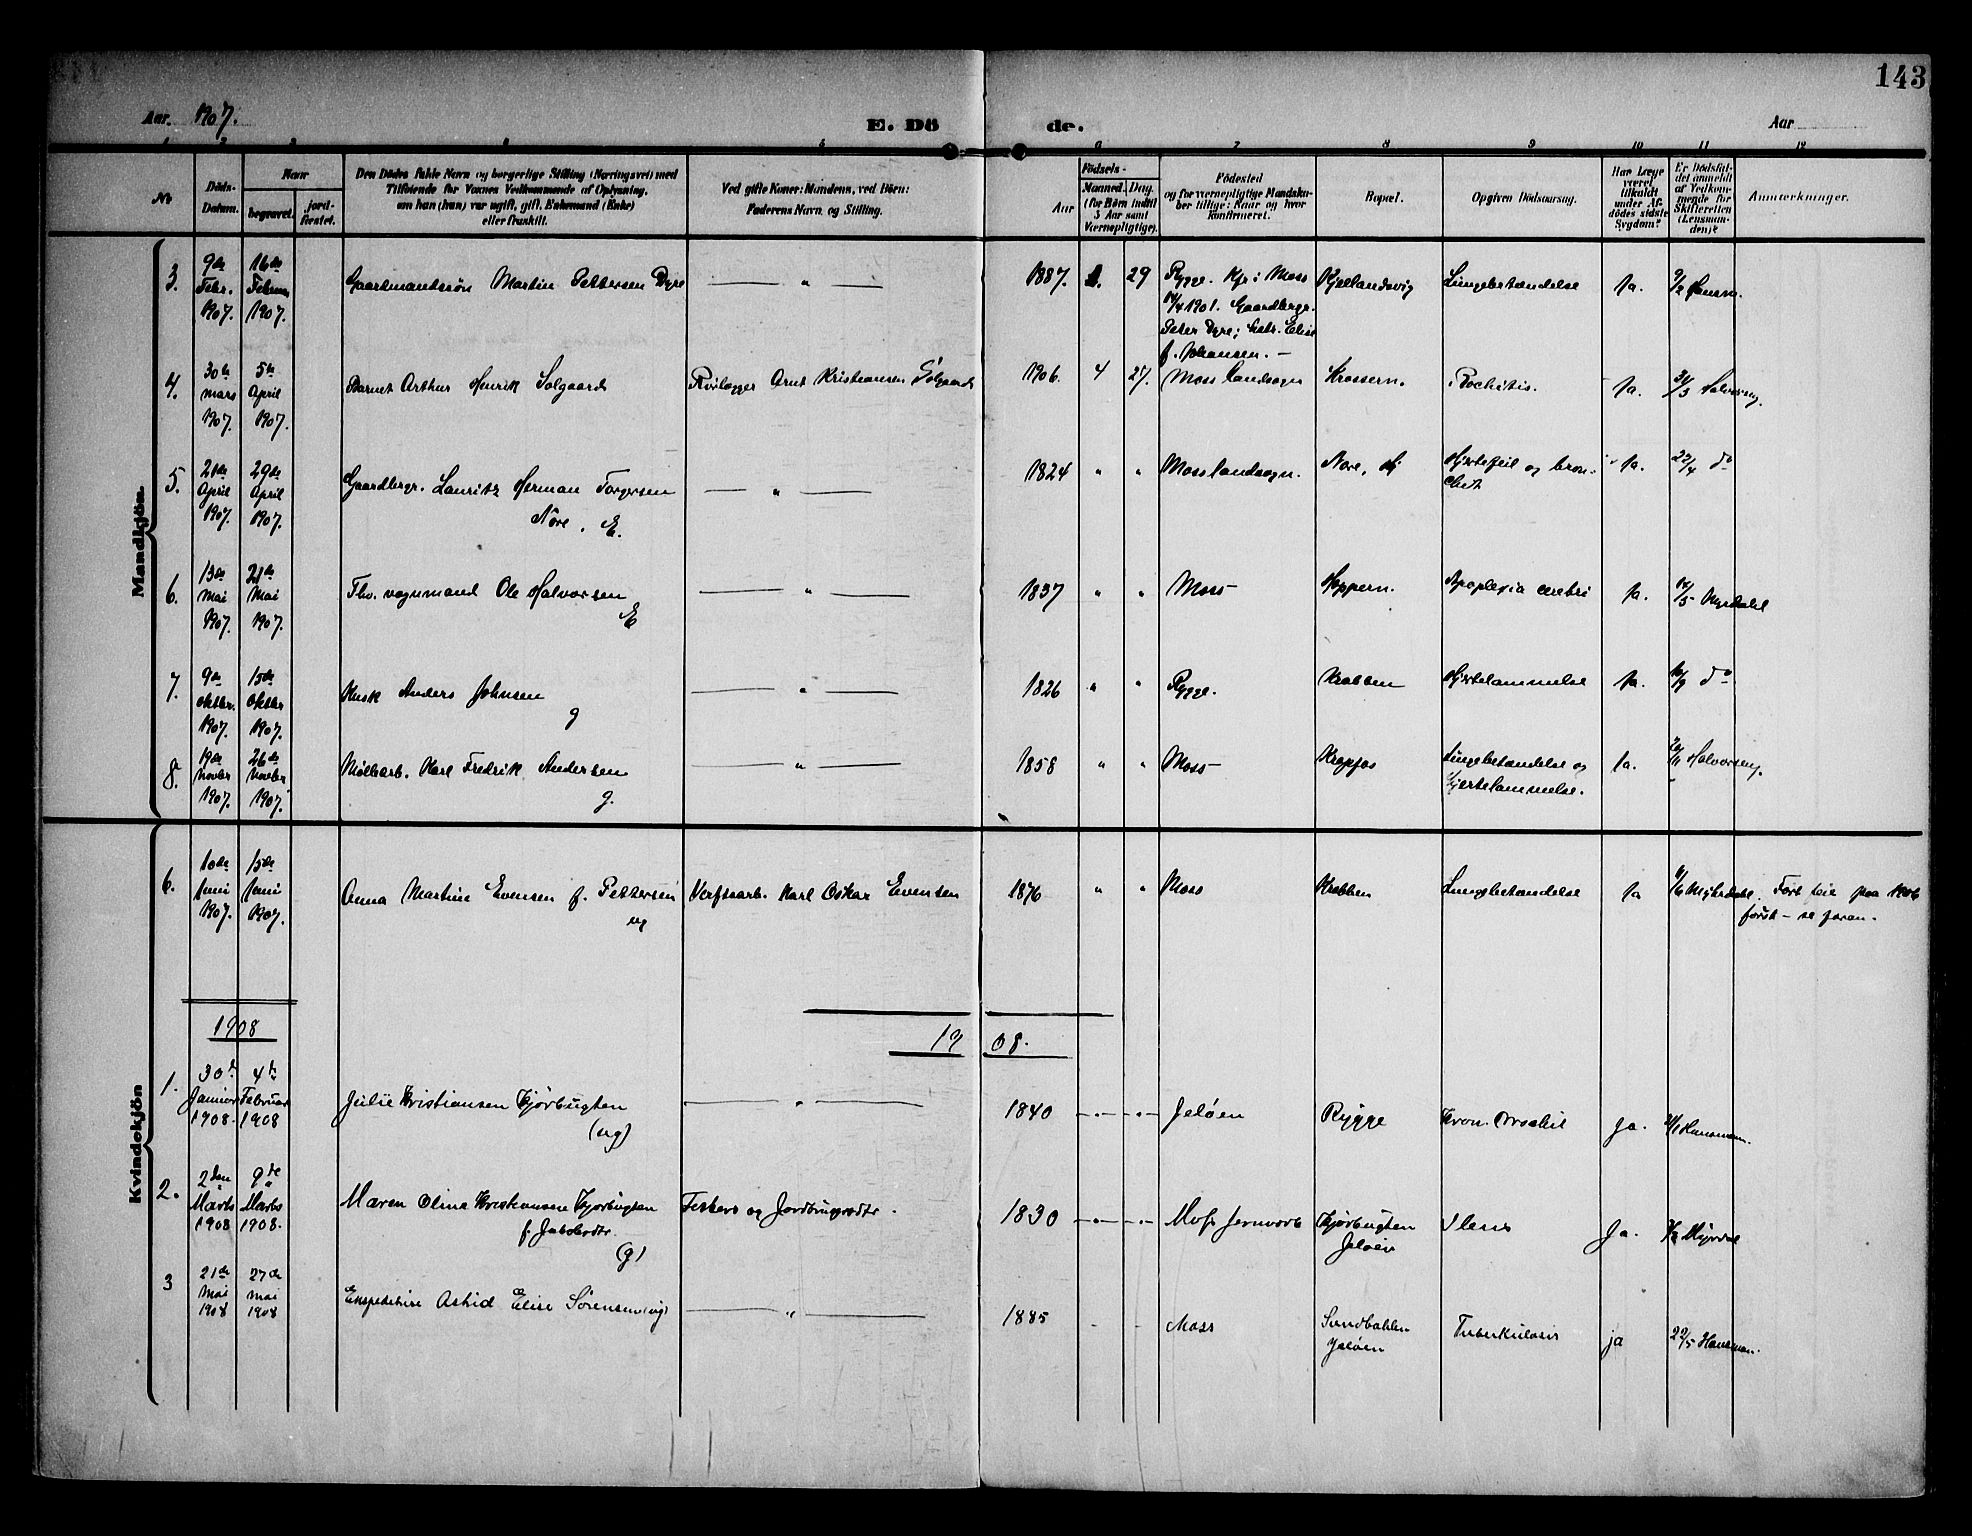 143
Aar. 1907.
E. Dö de.
Aar
1 2 3 5 6 7 8 9 10 11 12
No
Döds-Datum.
Naar
begravet.
jord-fæstet.
Den Dödes fulde Navn og borgerlige Stilling (Næringsvei) med
Tilföiende for Voxnes Vedkommende af Oplysning,
om han (hun) var ugift, gift, Enkemand (Enke)
eller fraskilt.
Ved gifte Koner: Mandens, ved Börn:
Faderens Navn og Stilling.
Födsels-
Aar
Maaned. Dag.
(for Börn indtil
3 Aar samt
Værnepligtige).
Födested
og for værnepligtige Mandska-
ber tillige: Naar og hvor
konfirmeret.
Bopæl.
Opgiven Dödsaarsag.
Har Læge
været
tilkaldt
under Af-
dödes sidste
Sygdom?
Er Dödsfal-
det anmeldt
af Vedkom-
mende for
Skifteretten
(Lensman-
den)?
Anmærkninger.
Mandkjön.
3. 9de Febr. 1907. 16de Februar 1907. Gaardmandssön Martin Pettersen Dyre — " — 1887. 29 Rygge. Kfr. i Moss
1901. Gaardbrgr.
Peter Dyre; hstr. Elise
f. Johansen. —
Kjellandsvig Lungebetændelse Ja. 9/2
4. 30te mars 1907. 5te April 1907. Barnet Arthur Henrik Solgaard Arnt Kristiansen Solgaard 1906. 4 27. Moss landsogn Krossern. Rachitis. Ja. 30/3 Halvorsen.
5. 21de April 1907. 29de April 1907. Gaardbrgr. Lauritz Herman Torgersen
Nore. E.
— " — 1824 " " Moss landsogn. Nore, Hjertefeil og bron-
chit
Ja. 22/4 do
6. 13de mai 1907. 21de Mai 1907. Fhv. vognmand Ole Halvorsen
E
— " — 1837 " " Moss Hoppern. Apoplexia cerebri Ja. 14/5 Myrdahl
7. 9de oktbr. 1907. 15de Oktbr 1907. Husm. Anders Johnsen
g
— " — 1826 " " Rygge. Krabben Hjertelammelse Ja. do
8. 19de Novbr 1907. 26de Novbr 1907. Møllearb. Karl Fredrik Andersen
g.
— " — 1858 " " Moss Krapfos Lungebetændelse og
Hjertelammelse.
Ja. 20/11 Halvorsen.
Kvindekjön
6. 10de Juni 1907. 15de Juni 1907. Anna Martine Evensen f. Pettersen
ug
Verftsarb. Karl Oskar Evensen 1876 " " Moss Krabben Lungebetændelse Ja Myhrdahl. Fört feil paa 1906
först — se foran.
1908
19 08.
1. 30te Januar 1908. 4de Februar 1908 Julie Kristiansen Kjørbugten
(ug)
— " — 1840 — " — " — Jeløen Rygge Kron. Ja. Hansmann.
2. 2den Marts 1908 9de Marts 1908. Maren Olina Kristiansen Kjørbugten
f. Jakobsdtr.
(g)
Fiskers og Jordbrugers 1830 — " — " — Moss Jernverk Kjørbugten
Jeløen
Ilens Ja. Myrdal
3 21de Mai 1908 27de Mai 1908 Ekspeditrise Astrid Elise Sørensen (ug) — " — 1885 - - Moss Sandbakken
Jeløen
Tuberkulosis ja 22/5 Hansman.